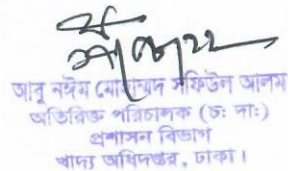 আবু নঈম মোহাম্মদ সফিউল আলম
অতিরিক্ত পরিচালক (চ: দা:)
প্রশাসন বিভাগ
খাদ্য অধিদপ্তর, ঢাকা।